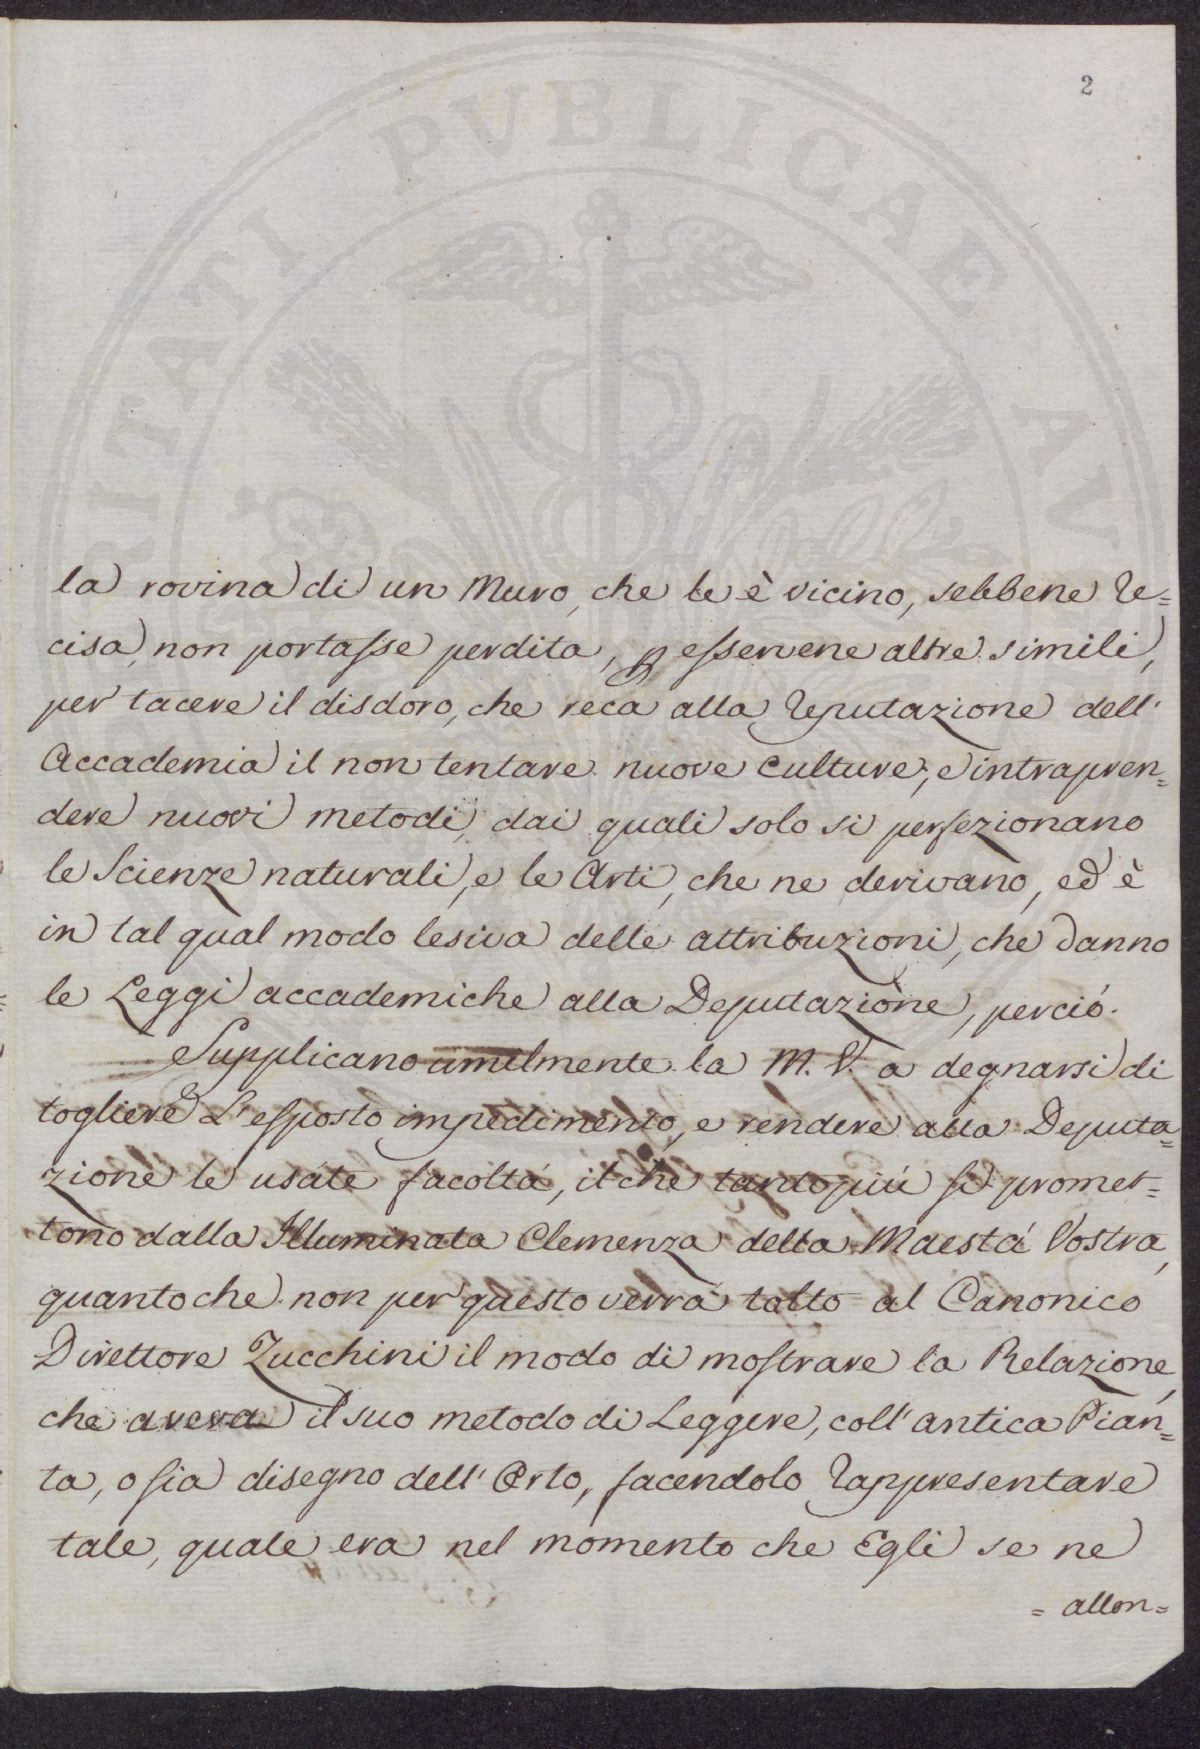 2
PROSPERITATI PVBLICAE AVGENDAE
la rovina di un Muro, che le è vicino, sebbene re=
cisa, non portasse perdita, p esservene altre simili,
per tacere il disdoro, che reca alla reputazione dell'
Accademia il non tentare nuove culture, e intrapren=
dere nuovi metodi, dai quali solo si perfezionano
le Scienze naturali, e le Arti, che ne derivano, ed è
in tal qual modo lesiva delle attribuzioni, che danno
le Leggi accademiche alla Deputazione, perció.
Supplicano umilmente la M. V. a degnarsi di
togliere L'esposto impedimento, e rendere alla Deputa=
zione le usate facoltá, il che tanto piú si promet=
tono dalla Illuminata Clemenza della Maestá Vostra,
quanto che non per questo verrá tolto al Canonico
Direttore Zucchini il modo di mostrare la Relazione,
che aveva il suo metodo di Leggere, coll'antica Pian=
ta, o sia disegno dell'Orto, facendolo rappresentare
tale, quale era nel momento che Egli se ne
= allon=